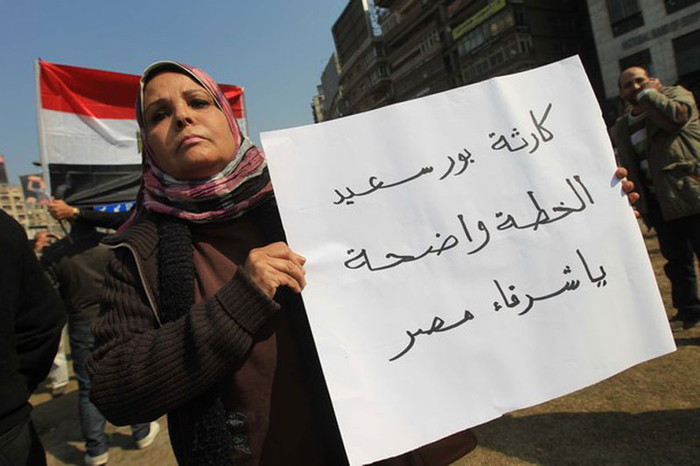 كارثة بور سعيد
الخطة واضحة
يا شرفاء مصر